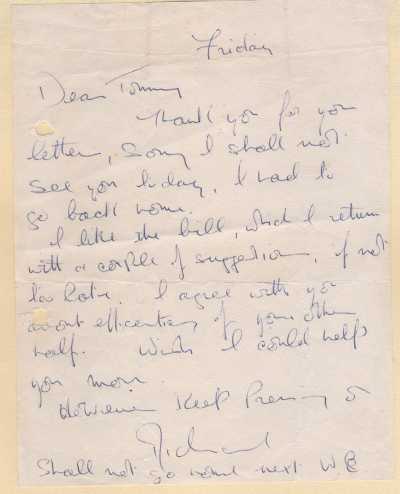 Friday
Dear Tommy
Thank you for your
letter, Sorry I shall not
see you today, I had to
go back home.
I like the bill, which I return
with a couple of suggestions, if not
too late. I agree with you
about efficiency of your other
half. Wish I could help
you more.
However Keep Pressing on
Richard
Shall not go home next W E